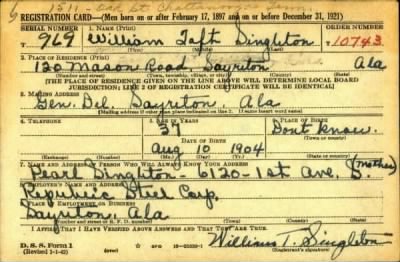 1511 - Oak St. Chattanooga Tenn
REGISTRATION CARD—(Men born on or after February 17, 1897 and on or before December 31, 1921)
SERIAL NUMBER 1. NAME (Print) ORDER NUMBER
969 William Taft Singleton 10743
(First) (Middle) (Last)
2. PLACE OF RESIDENCE (Print)
120 Mason Road Sayreton Ala
(Number and street) (Town, township, village, or city) (County) (State)
[THE PLACE OF RESIDENCE GIVEN ON THE LINE ABOVE WILL DETERMINE LOCAL BOARD
JURISDICTION; LINE 2 OF REGISTRATION CERTIFICATE WILL BE IDENTICAL]
3. MAILING ADDRESS
Gen. Del. Sayreton, Ala
[Mailing address if other than place indicated on line 2. If same insert word same]
4. TELEPHONE 5. AGE IN YEARS 6. PLACE OF BIRTH
37 Dont know.
DATE OF BIRTH
Aug 10 1904
7. NAME AND ADDRESS OF PERSON WHO WILL ALWAYS KNOW YOUR ADDRESS
Pearl Singleton - 6120-1st Ave. S. (mother)
8. EMPLOYER'S NAME AND ADDRESS
Republic Steel Corp.
9. PLACE OF EMPLOYMENT OR BUSINESS
Sayreton, Ala
(Number and street or R. F. D. number) (Town) (County) (State)
I AFFIRM THAT I HAVE VERIFIED ABOVE ANSWERS AND THAT THEY ARE TRUE.
D. S. S. Form 1
(Revised 1-1-42) (over) 16-21630-1
William T. Singleton
(Registrant's signature)